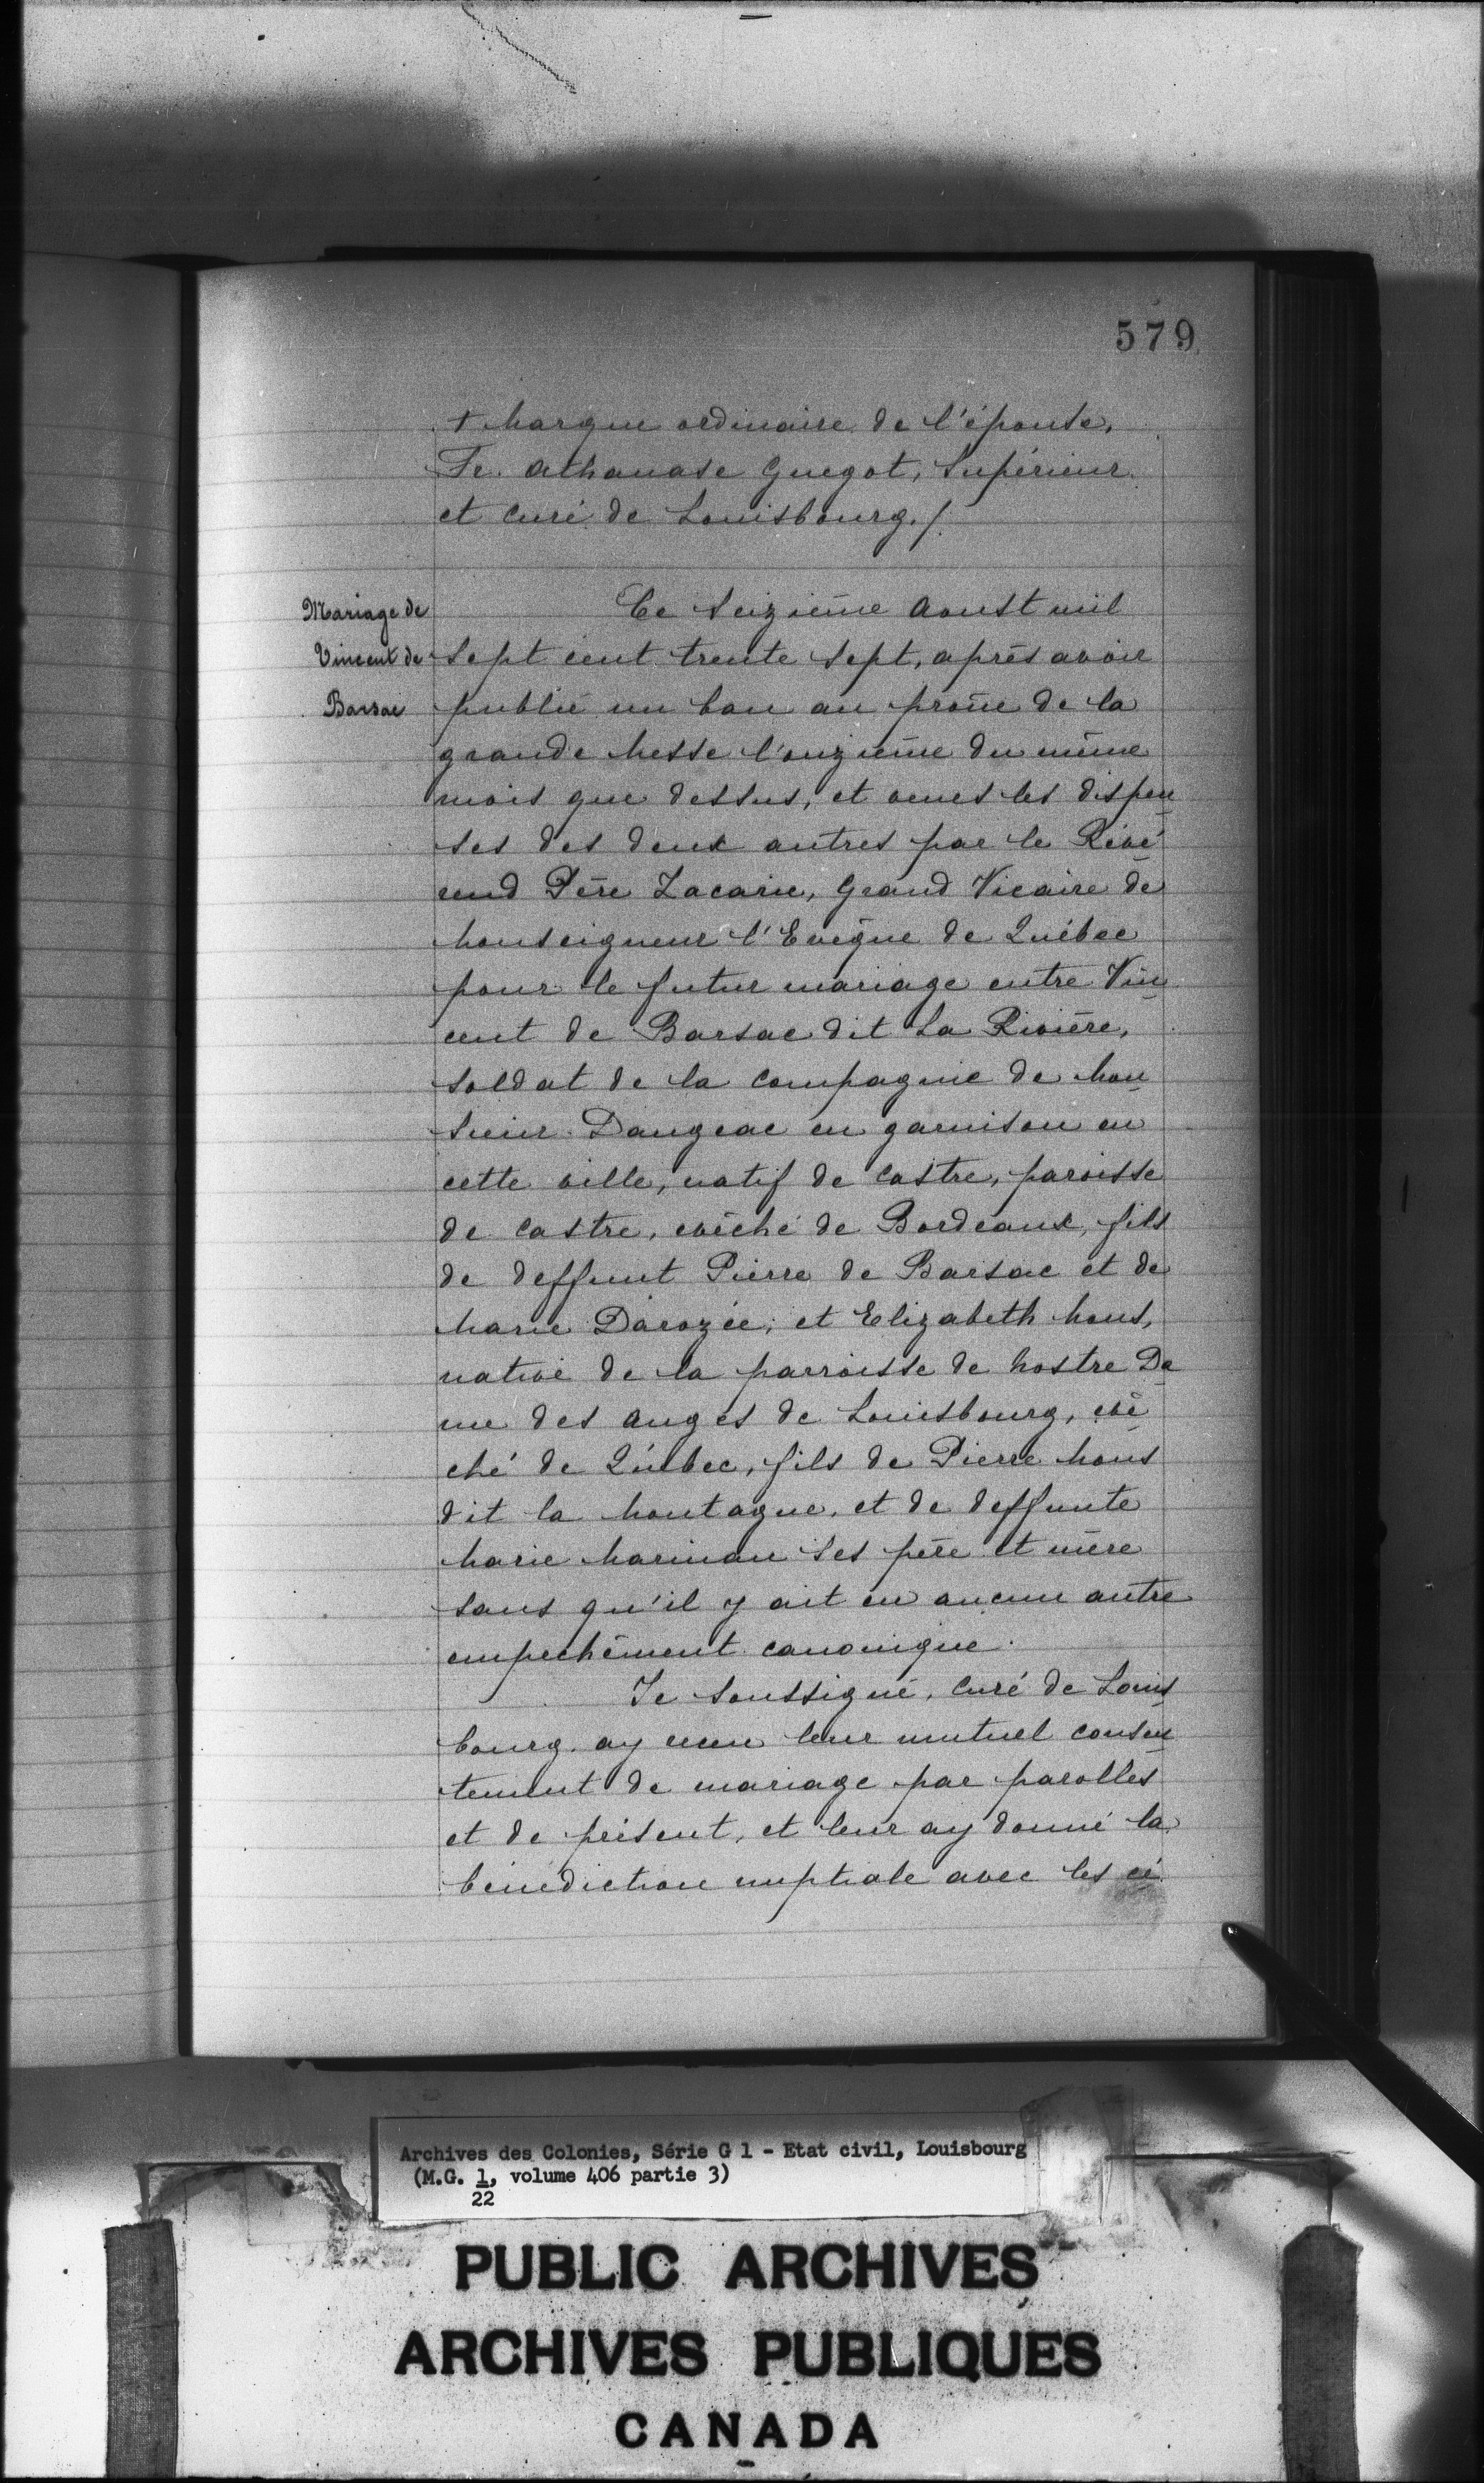 579
+ Marque ordinaire de l'épouse,
Fr. Athanase Guegot, Supérieur
et Curé de Louisbourg./.
Mariage de
Vincent de
Barsac
Ce seizième Aoust mil
sept cent trente sept, après avoir
publié un ban au prône de la
grande Messe l'onzième du même
mois que dessus, et veues les dispen
ses des deux autres par le Révé
rend Père Zacarie, Grand Vicaire de
Monseigneur l'Evêque de Québec
pour le futur mariage entre Vin
cent de Barsac dit La Rivière,
soldat de la Compagnie de Mon
sieur Dangeac en garnison en
cette ville, natif de Castre, paroisse
de Castre, evêché de Bordeaux, fils
de deffunt Pierre de Barsac et de
Marie Darozée; et Elizabeth Mous,
native de la parroisse de Nostre Da
me des Anges de Louisbourg, evê
ché de Québec, fils de Pierre Mous
dit la Montagne, et de deffunte
Marie Mariman ses père et mère
sans qu'il y ait eu aucun autre
empechêment canonique.
Je soussigné, Curé de Louis
bourg, ay receu leur mutuel consen
tement de mariage par parolles
et de présent, et leur ay donné la
bénédiction nuptiale avec les cé
Archives des Colonies, Série G 1 - Etat civil, Louisbourg
(M.G. 1, volume 406 partie 3)
22
PUBLIC ARCHIVES
ARCHIVES PUBLIQUES
CANADA